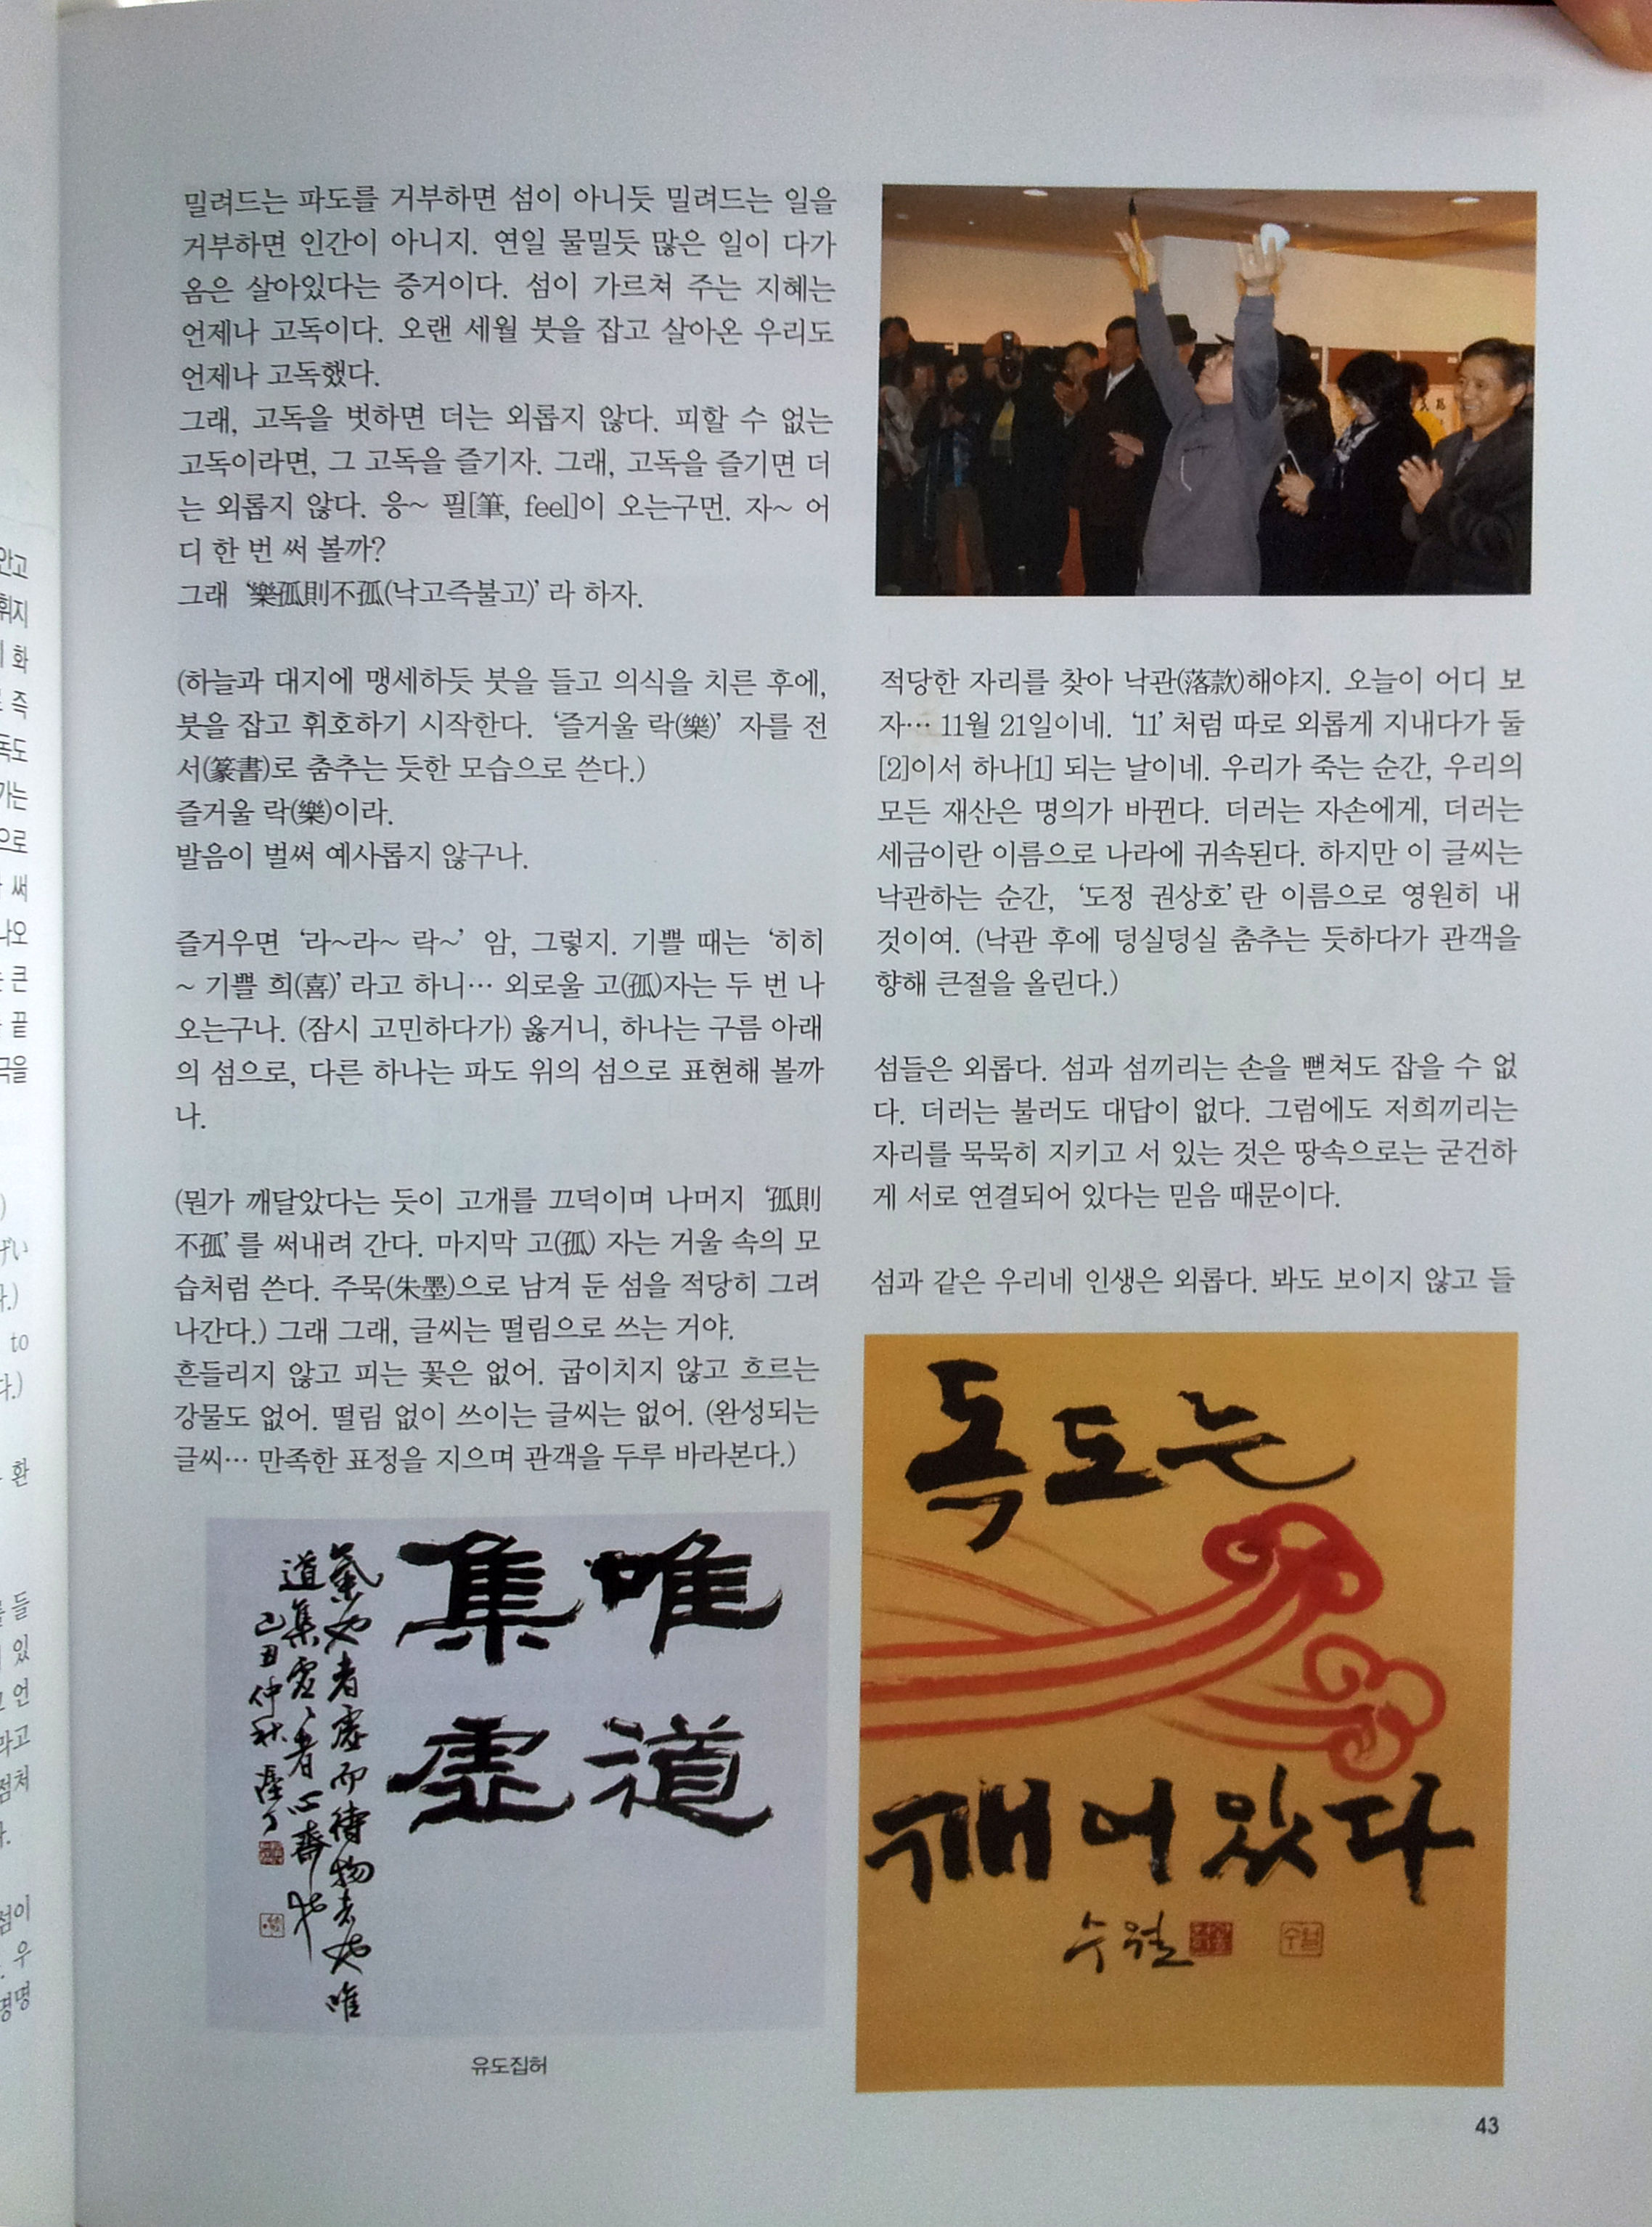 밀려드는 파도를 거부하면 섬이 아니듯 밀려드는 일을
거부하면 인간이 아니지. 연일 물밀듯 많은 일이 다가
옴은 살아있다는 증거이다. 섬이 가르쳐 주는 지혜는
언제나 고독이다. 오랜 세월 붓을 잡고 살아온 우리도
언제나 고독했다.
그래, 고독을 벗하면 더는 외롭지 않다. 피할 수 없는
고독이라면, 그 고독을 즐기자. 그래, 고독을 즐기면 더
는 외롭지 않다. 응~ 필[筆, feel]이 오는구먼. 자~ 어
디 한 번 써 볼까?
그래 ‘樂孤則不孤(낙고즉불고)’라 하자.
(하늘과 대지에 맹세하듯 붓을 들고 의식을 치른 후에,
붓을 잡고 휘호하기 시작한다. ‘즐거울 락(樂)’ 자를 전
서(篆書)로 춤추는 듯한 모습으로 쓴다.)
즐거울 락(樂)이라.
발음이 벌써 예사롭지 않구나.
즐거우면 ‘라~라~ 락~’ 암, 그렇지. 기쁠 때는 ‘히히
~ 기쁠 희(喜)’라고 하니… 외로울 고(孤)자는 두 번 나
오는구나. (잠시 고민하다가) 옳거니, 하나는 구름 아래
의 섬으로, 다른 하나는 파도 위의 섬으로 표현해 볼까
나.
(뭔가 깨달았다는 듯이 고개를 끄덕이며 나머지 ‘孤則
不孤’를 써내려 간다. 마지막 고(孤) 자는 거울 속의 모
습처럼 쓴다. 주묵(朱墨)으로 남겨 둔 섬을 적당히 그려
나간다.) 그래 그래, 글씨는 떨림으로 쓰는 거야.
흔들리지 않고 피는 꽃은 없어. 굽이치지 않고 흐르는
강물도 없어. 떨림 없이 쓰이는 글씨는 없어. (완성되는
글씨… 만족한 표정을 지으며 관객을 두루 바라본다.)
唯道
集虛
氣也者虛而待物者也唯
道集虛虛者心齋也
己丑仲秋
유도집허
적당한 자리를 찾아 낙관(落款)해야지. 오늘이 어디 보
자… 11월 21일이네. ‘11’처럼 따로 외롭게 지내다가 둘
[2]이서 하나[1] 되는 날이네. 우리가 죽는 순간, 우리의
모든 재산은 명의가 바뀐다. 더러는 자손에게, 더러는
세금이란 이름으로 나라에 귀속된다. 하지만 이 글씨는
낙관하는 순간, ‘도정 권상호’란 이름으로 영원히 내
것이여. (낙관 후에 덩실덩실 춤추는 듯하다가 관객을
향해 큰절을 올린다.)
섬들은 외롭다. 섬과 섬끼리는 손을 뻗쳐도 잡을 수 없
다. 더러는 불러도 대답이 없다. 그럼에도 저희끼리는
자리를 묵묵히 지키고 서 있는 것은 땅속으로는 굳건하
게 서로 연결되어 있다는 믿음 때문이다.
섬과 같은 우리네 인생은 외롭다. 봐도 보이지 않고 들
독도는
깨어있다
수월
수월
43